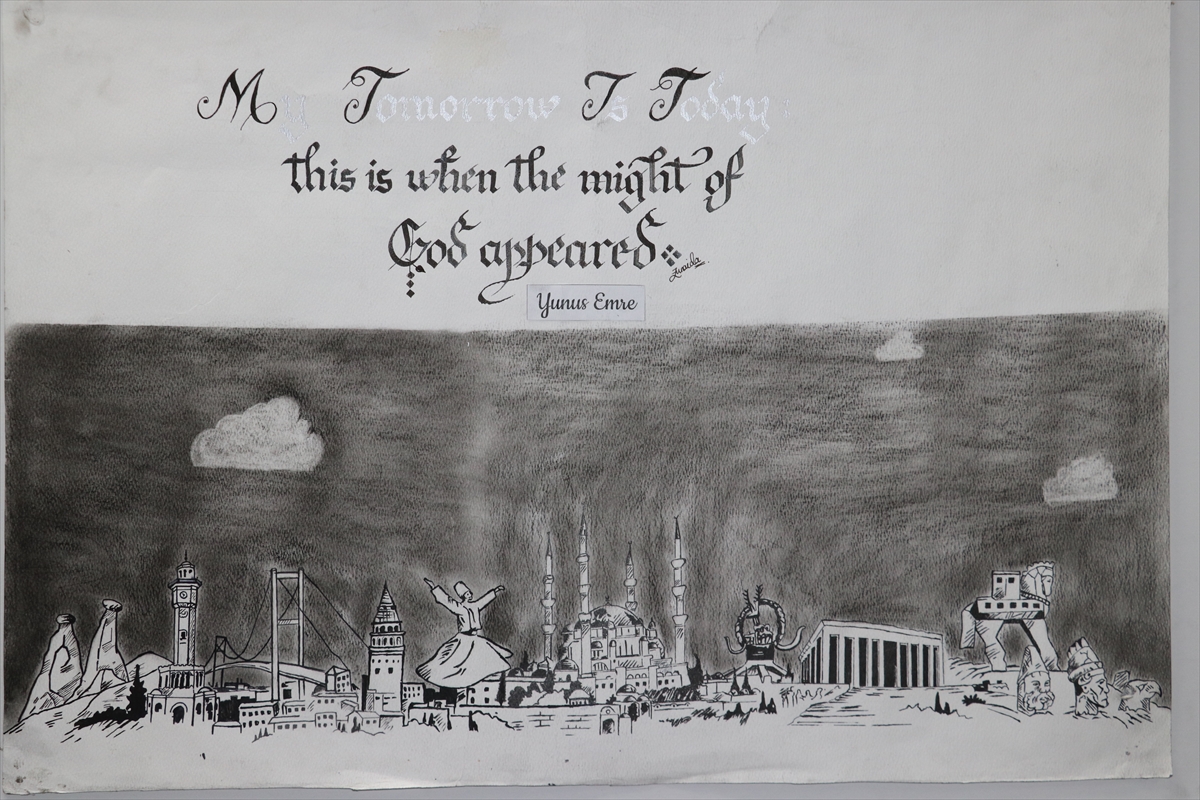 My Tomorrow Is Today:
this is when the might of
God appeared
Yunus Emre